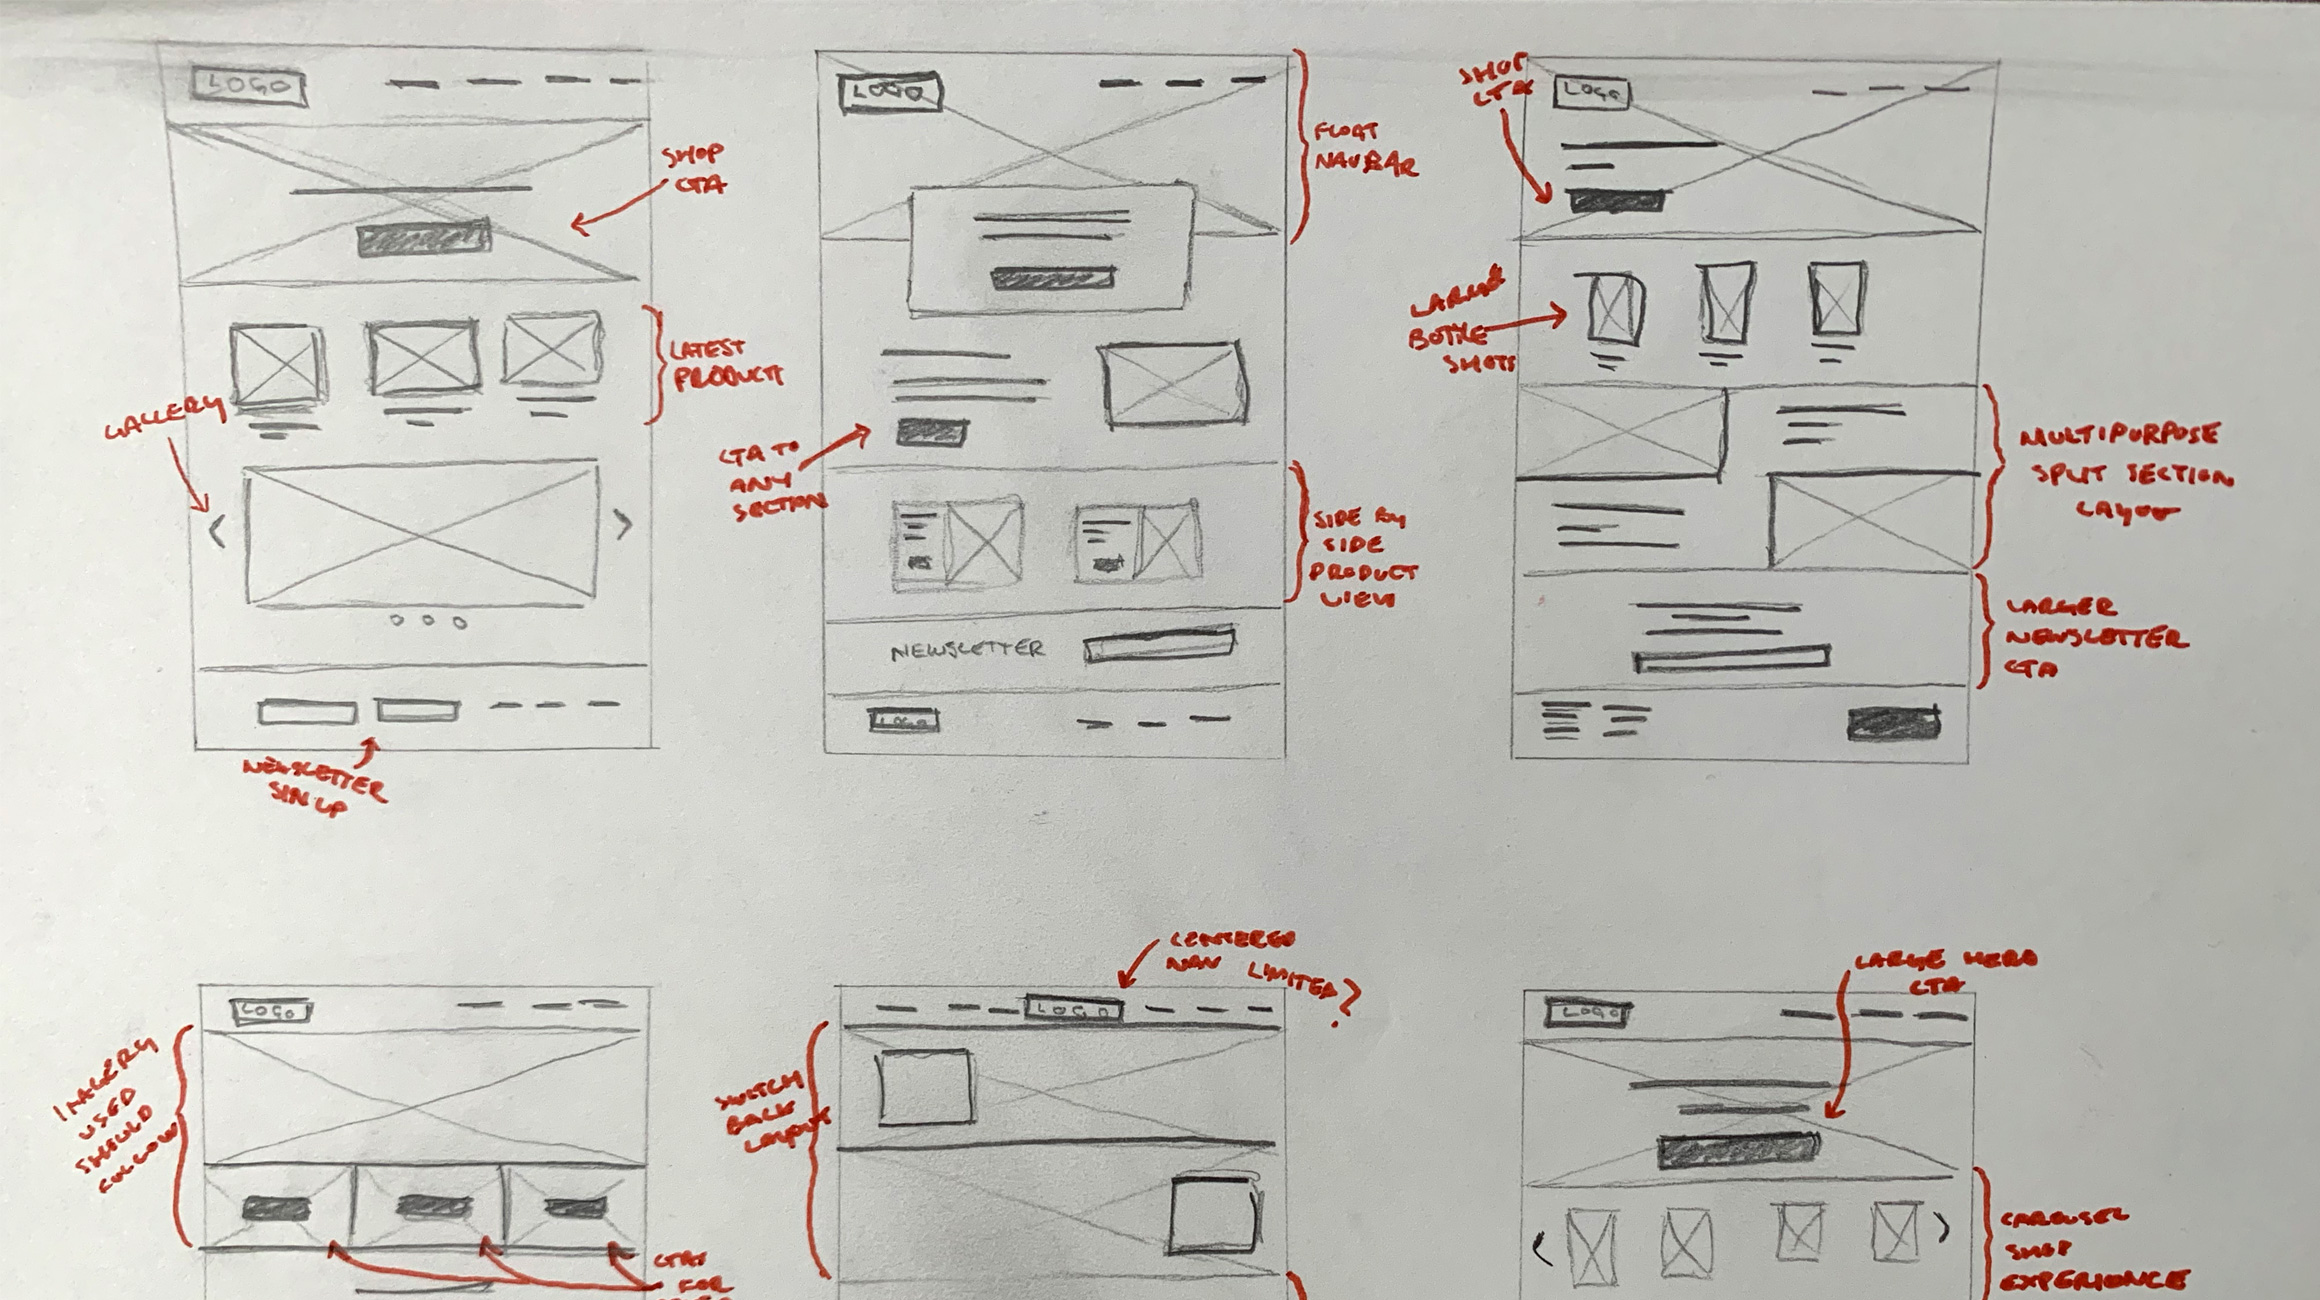 LOGO
SHOP
CTA
LATEST
PRODUCTS
GALLERY
NEWSLETTER
SINUP
LOGO
FLOAT
NAVBAR
CTA TO
ANY
SECTION
SIDE BY
SIDE
PRODUCT
VIEW
NEWSLETTER
LOGO
SHOP
CTA
LOGO
LARGE
BOTTLE
SHOTS
MULTIPURPOSE
SPLIT SECTION
LAYOUT
LARGER
NEWSLETTER
CTA
LOGO
IMAGERY
USED
SHOULD
FOLLOW
CTAS
FOR
CENTERED
NAV LIMITED?
LOGO
SWITCH
BACK
LAYOUT
LARGE HERO
CTA
LOGO
CAROUSEL
SHOP
EXPERIENCE